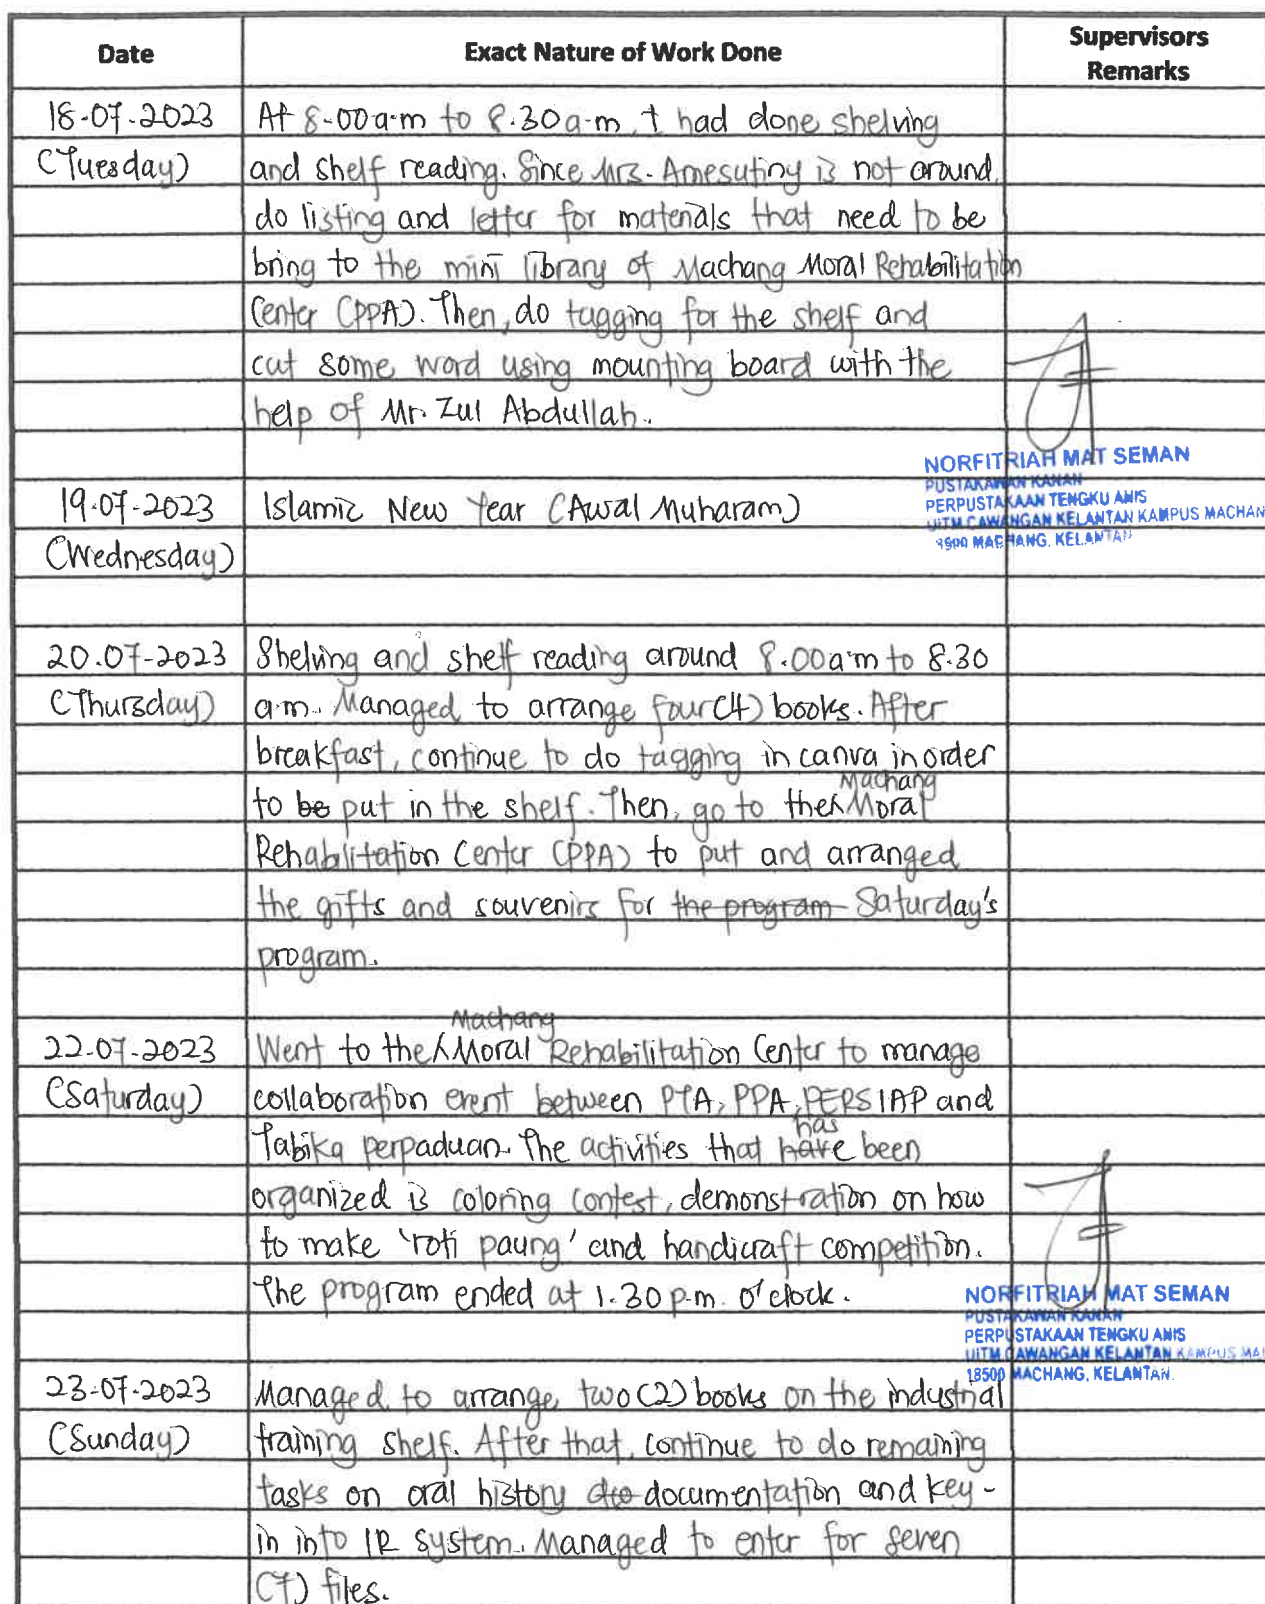 Date Exact Nature of Work Done Supervisors Remarks
18-07-2023 At 8.00 a.m to 8.30 a.m, I had done shelving
(Tuesday) and shelf reading. Since Mrs. Amesutiny is not around,
do listing and letter for materials that need to be
bring to the mini library of Machang Moral Rehabilitation
Center (PPA). Then, do tagging for the shelf and
cut some word using mounting board with the
help of Mr. Zul Abdullah.
NORFITRIAH MAT SEMAN
PUSTAKAWAN KANAN
PERPUSTAKAAN TENGKU ANIS
UITM CAWANGAN KELANTAN KAMPUS MACHAN
18500 MACHANG, KELANTAN
19-07-2023 Islamic New Year (Awal Muharam)
(Wednesday)
20.07-2023 Shelving and shelf reading around 8.00 a.m to 8.30
(Thursday) a.m. Managed to arrange four (4) books. After
breakfast, continue to do tagging in canva in order
to be put in the shelf. Then, go to the Machang Moral
Rehablitation Center (PPA) to put and arranged
the gifts and souvenirs for the program Saturday's
program.
22-07-2023 Went to the Machang Moral Rehabilitation Center to manage
(Saturday) collaboration event between PTA, PPA, PERSIAP and
Tabika perpaduan. The activities that have has been
organized is coloring contest, demonstration on how
to make 'roti paung' and handicraft competition.
The program ended at 1.30 p.m. o'clock.
NORFITRIAH MAT SEMAN
PUSTAKAWAN KANAN
PERPUSTAKAAN TENGKU ANIS
UITM CAWANGAN KELANTAN KAMPUS MA
18500 MACHANG, KELANTAN.
23-07-2023 Managed to arrange two (2) books on the industrial
(Sunday) training shelf. After that, continue to do remaining
tasks on oral history documentation and key-
in into IR system. Managed to enter for seven
(7) files.